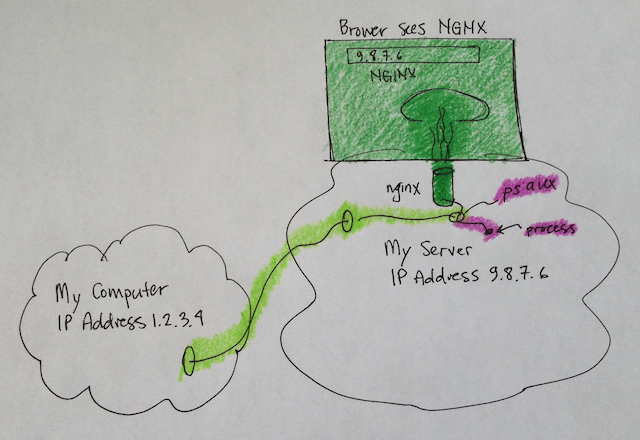 Brower sees NGNX
9.8.7.6
NGINX
nginx
ps aux
process
My Server
IP Address 9.8.7.6
My Computer
IP Address 1.2.3.4